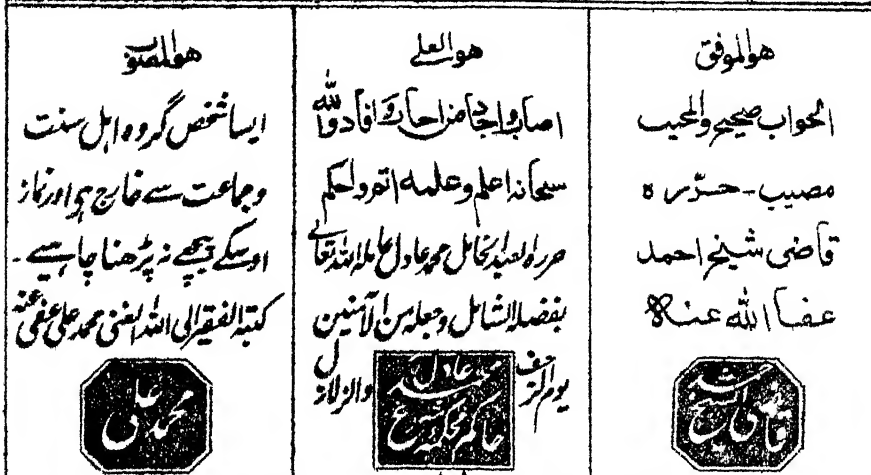 هوالموفق
الجواب صحیح والمجیب
مصیب - حرّره
قاضی شیخ احمد
عفا الله عنه
قاضی شیخ
هو العلی
اصاب واجاد من اجاب وافاد والله
سبحانہ اعلم وعلمہ اتم واحکم
حررہ العبد الخامل محمد عادل عاملہ اللہ تعالٰی
بفضلہ الشامل وجعلہ من الآمنین
یوم والزلازل
محمد عادل
حاکم محکمہ شرع
هوالمصوب
ایسا شخص گروہ اہل سنت
وجماعت سے خارج ہو اور نماز
اوسکے پیچھے نہ پڑھنا چاہیے -
کتبہ الفقیر الی اللہ الغنی محمد علی عفی عنہ
محمد علی